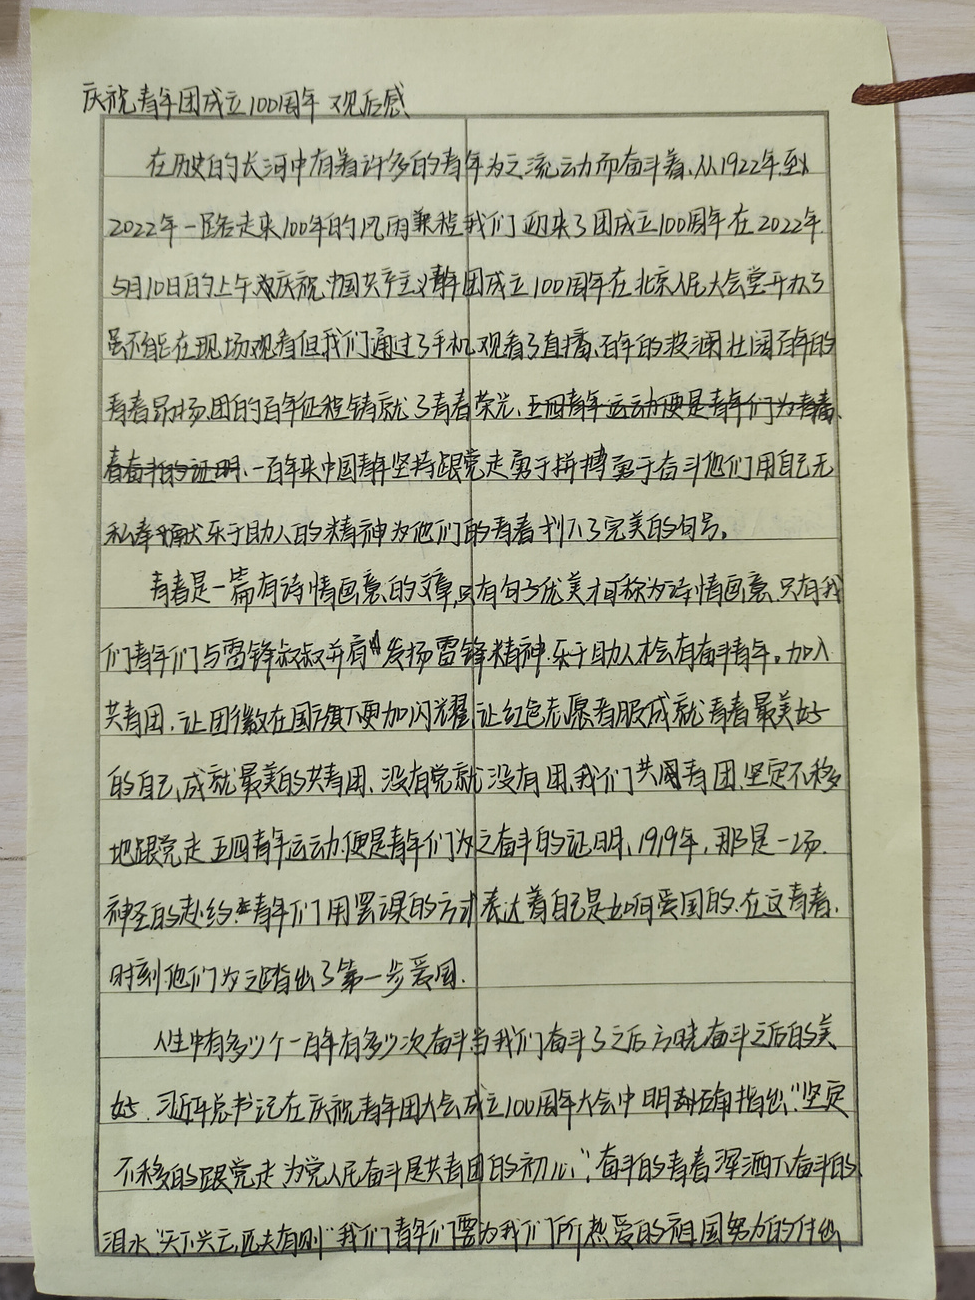 庆祝青年团成立100周年 观后感
在历史的长河中有着许多的青年为之流动而奋斗着、从1922年至
2022年一路走来100年的风雨兼程我们迎来了团成立100周年在2022年
5月10日的上午庆祝中国共产主义青年团成立100周年在北京人民大会堂开办了
虽不能在现场观看但我们通过了手机观看了直播、百年的波澜壮阔百年的
青春昂扬、团的百年征程铸就了青春荣光、五四青年运动便是青年们为青春、
春奋斗的证明、一百年来中国青年坚持跟党走勇于拼搏勇于奋斗他们用自己无
私奉献乐于助人的精神为他们的青春划下了完美的句号。
青春是一篇有诗情画意的文章,只有句子优美才可称为诗情画意、只有我
们青年们与雷锋叔叔并肩发扬雷锋精神、乐于助人才会有奋斗青年。加入
共青团、让团徽在国旗下更加闪耀让红色志愿者服成就青春最美好
的自己、成就最美的共青团、没有党就没有团、我们共青团、坚定不移
地跟党走五四青年运动便是青年们为之奋斗的证明、1919年,那是一场
神圣的赴约、青年们用罢课的方式表达着自己是如何爱国的、在这青春、
时刻他们为之踏出了第一步爱国.
人生中有多少个一百年有多少次奋斗当我们奋斗了之后方晓奋斗之后的美
好. 习近平总书记在庆祝青年团大会成立100周年大会中明确指出:“坚定
不移的跟党走、为党人民奋斗是共青团的初心”,奋斗的青春浑洒下奋斗的
泪水“天下兴亡,匹夫有则”我们青年们要为我们所热爱的祖国努力的付出